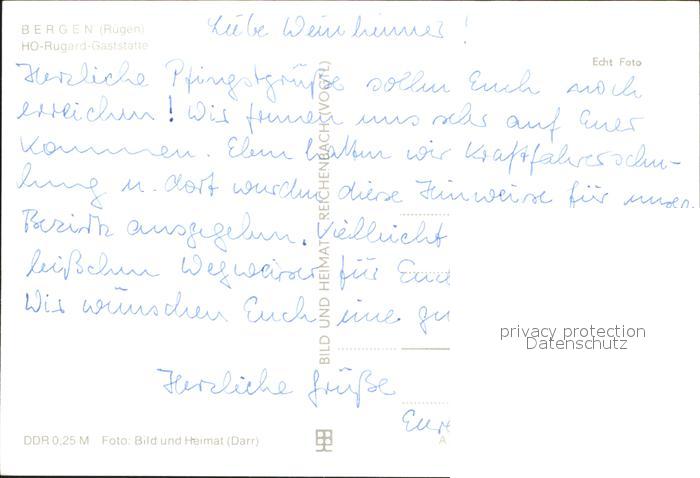 Liebe Weinheimer!
BERGEN (Rügen)
HO-Rugard-Gaststätte
Echt Foto
Herzliche Pfingstgrüße sollen Euch noch
erreichen! Wir freuen uns sehr auf Euer
Kommen. Eben hatten wir Kraftfahrerschu-
lung u. dort wurden diese Hinweise für unsern
Bezirk ausgegeben. Vielleicht
bißchen Wegweiser für Euch
Wir wünschen Euch eine gu
Herzliche Grüße
Eure
BILD UND HEIMAT REICHENBACH (VOGTL)
DDR 0,25 M Foto: Bild und Heimat (Darr)
A
privacy protection
Datenschutz